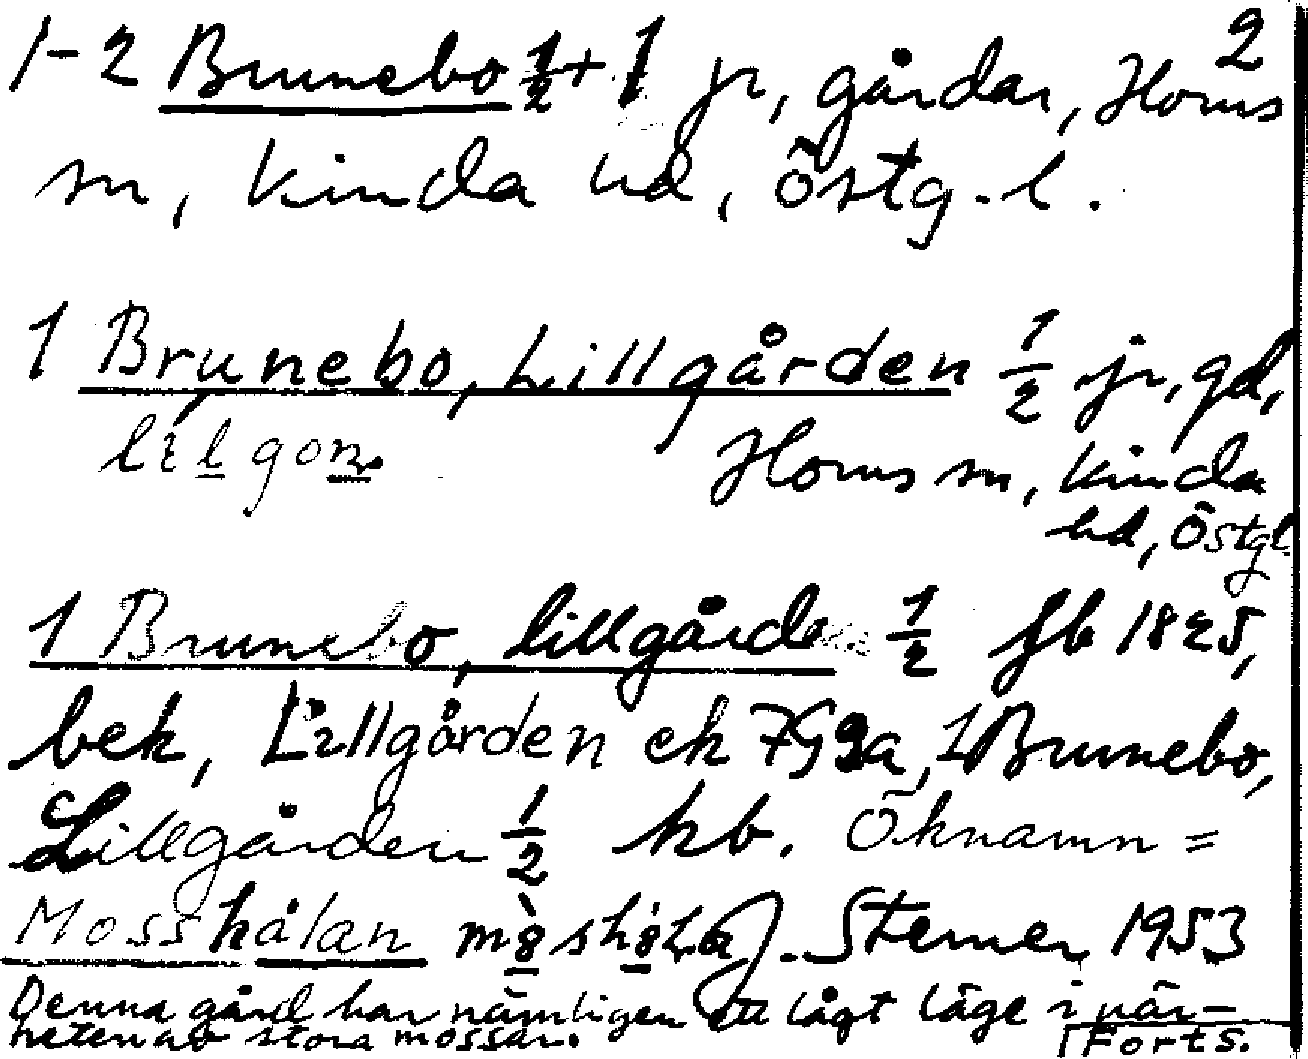 2
1-2 Brunebo ½ + 1 jr, gårdar, Horns
sn, Kinda hd, Östg. l.
1 Brunebo, Lillgården ½ jr, gd,
Horns sn, Kinda
hd, Östgl
1 Brunebo, lillgården ½ fb 1825,
bek, Lillgården ek 792a, 1 Brunebo,
Lillgården ½ kb. Öknamn =
Mosshålan J. Sterner 1953
Denna gård har nämligen ett lågt läge i när-
heten av stora mossar. Forts.